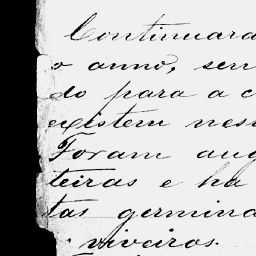 Continuara
o anno, sen
do para a c
existem nes
Foram aug
teiras e ha
tas germina
viveiros.